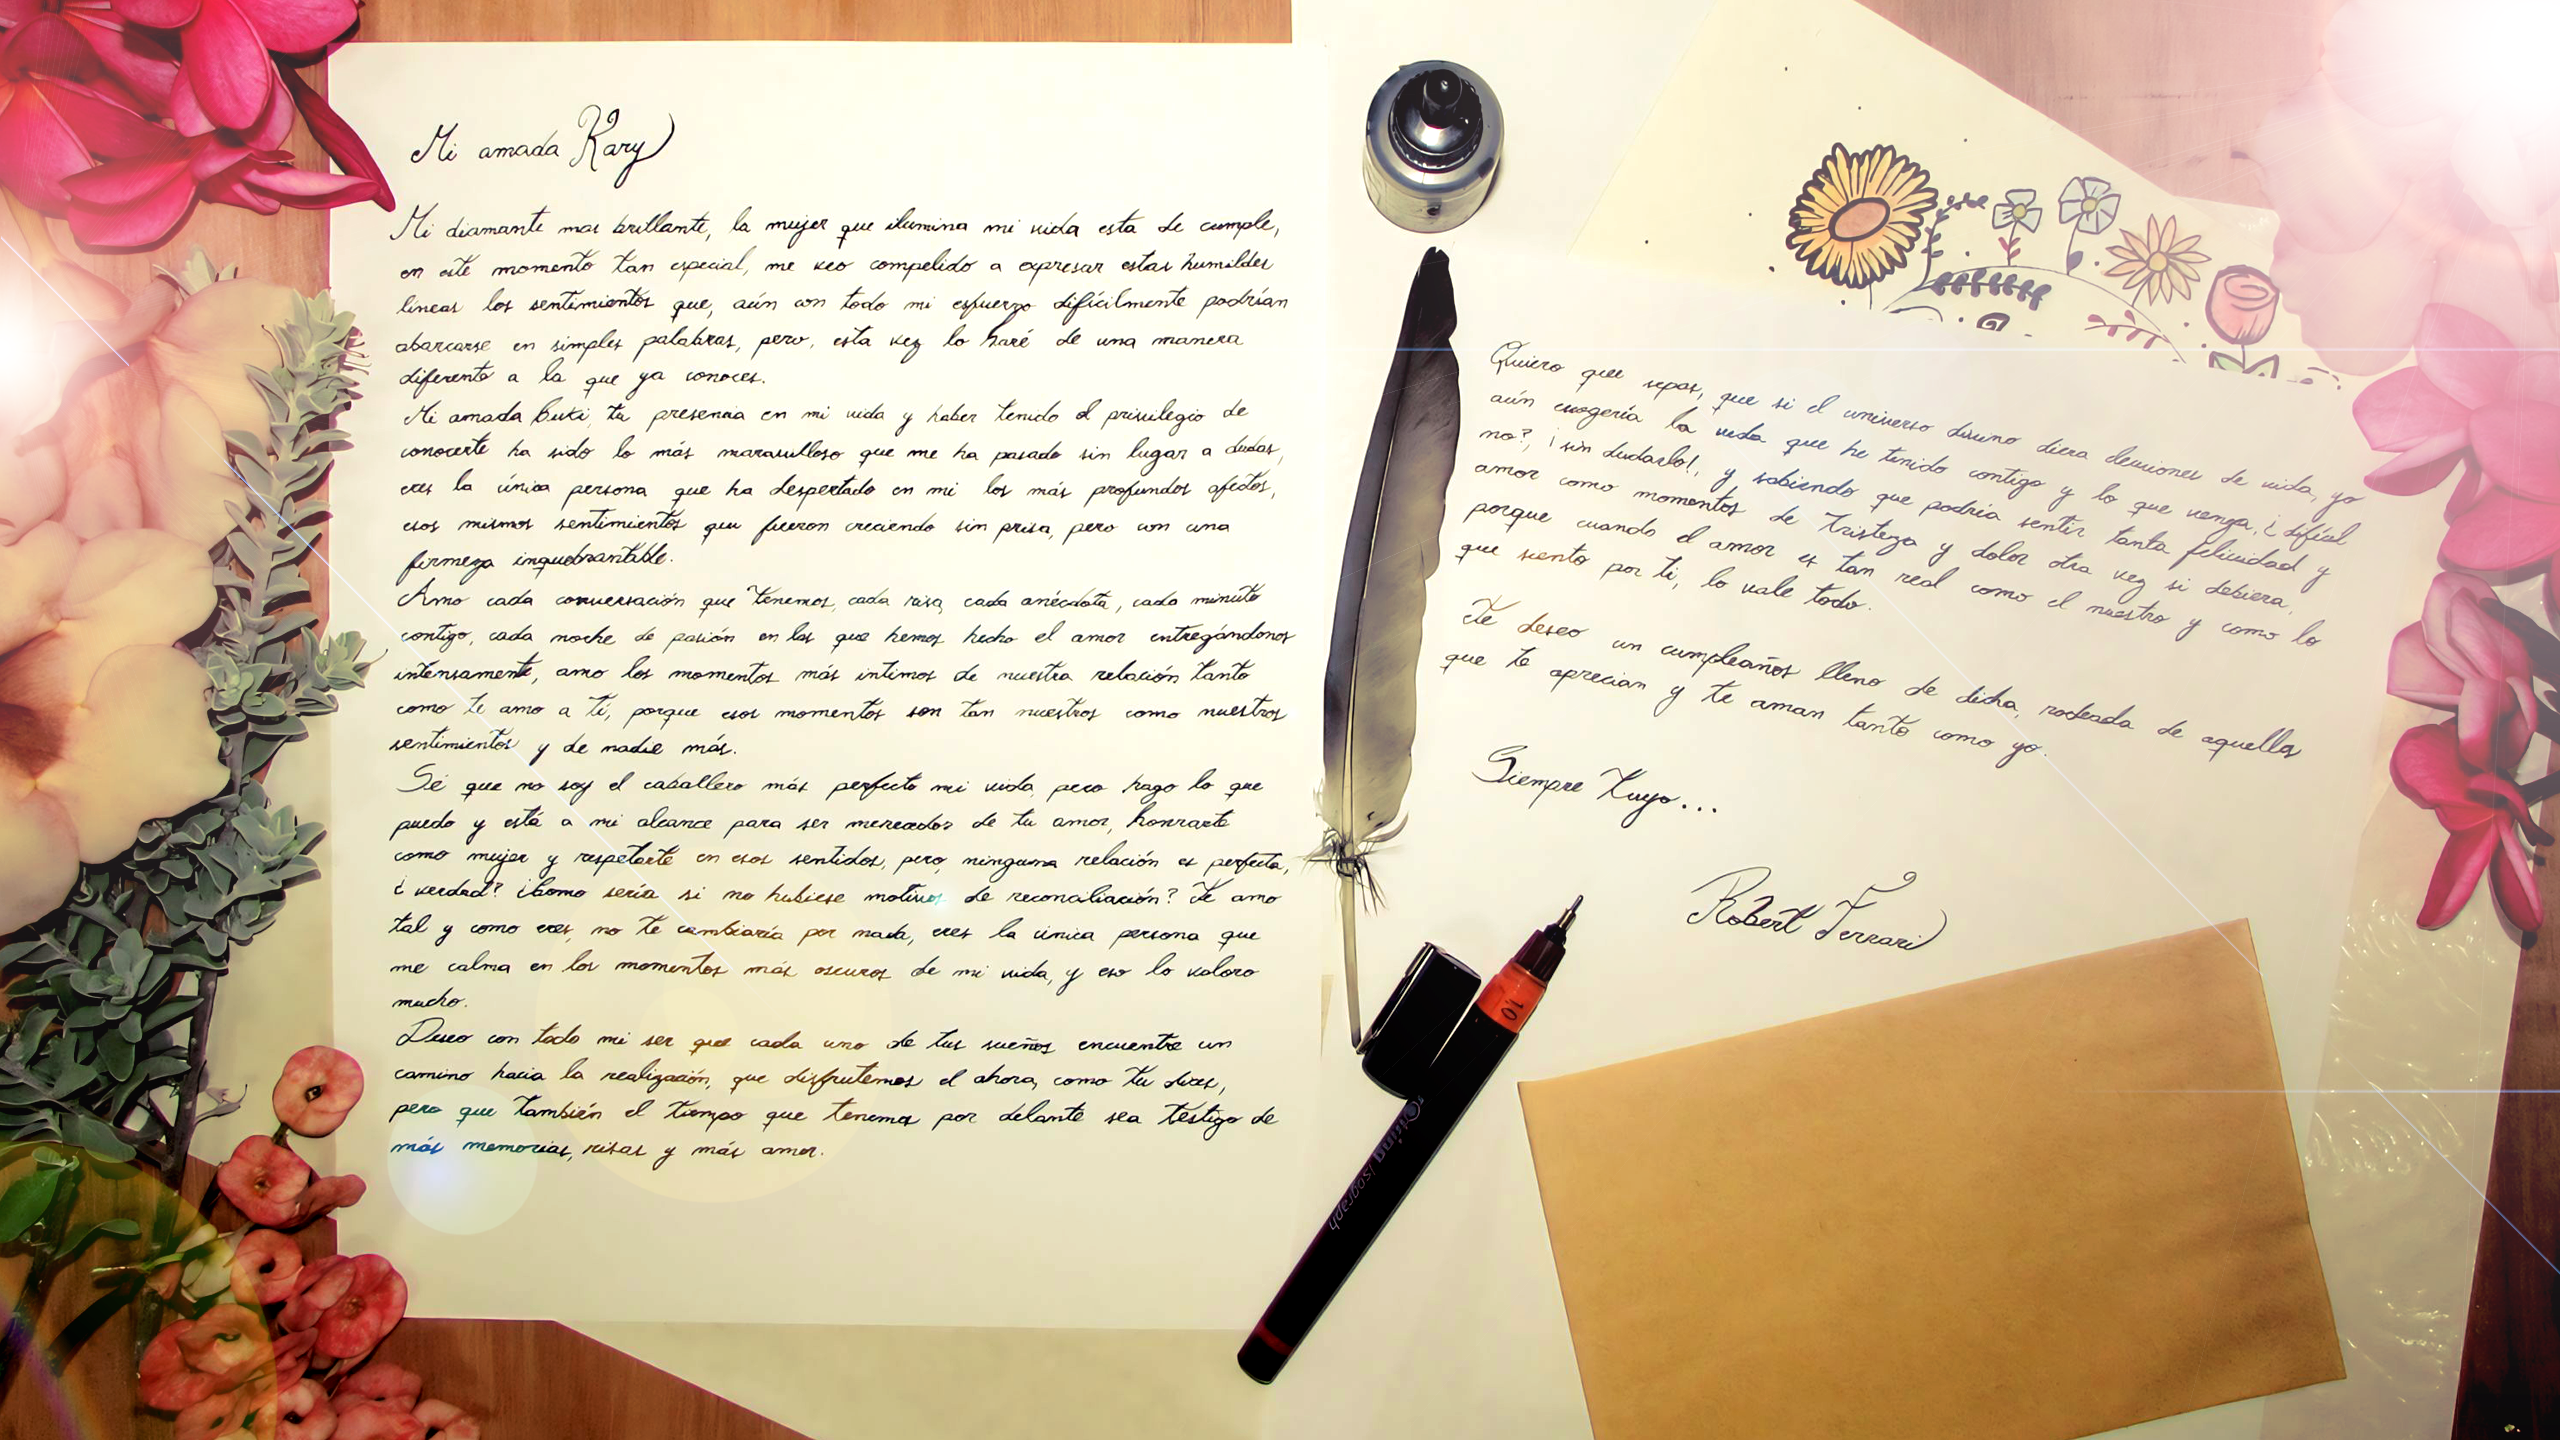 Mi amada Kary
Mi diamante mas brillante, la mujer que ilumina mi vida esta de cumple,
en este momento tan especial, me veo compelido a expresar estas humildes
líneas los sentimientos que, aún con todo mi esfuerzo difícilmente podrían
abarcarse en simples palabras, pero, esta vez lo haré de una manera
diferente a la que ya conoces.
Mi amada Buki, tu presencia en mi vida y haber tenido el privilegio de
conocerte ha sido lo más maravilloso que me ha pasado sin lugar a dudas,
eres la única persona que ha despertado en mi los más profundos afectos,
esos mismos sentimientos que fueron creciendo sin prisa, pero con una
firmeza inquebrantable.
Amo cada conversación que tenemos, cada risa, cada anécdota, cada minuto
contigo, cada noche de pasión en las que hemos hecho el amor entregándonos
intensamente, amo los momentos más intimos de nuestra relación tanto
como te amo a ti, porque esos momentos son tan nuestros como nuestros
sentimientos y de nadie más.
Sé que no soy el caballero más perfecto mi vida, pero hago lo que
puedo y está a mi alcance para ser merecedor de tu amor, honrarte
como mujer y respetarte en esos sentidos, pero, ninguna relación es perfecta,
¿verdad? ¿Como sería si no hubiese motivos de reconciliación? Te amo
tal y como eres, no te cambiaría por nada, eres la única persona que
me calma en los momentos más oscuros de mi vida, y eso lo valoro
mucho.
Deseo con todo mi ser que cada uno de tus sueños encuentre un
camino hacia la realización, que disfrutemos el ahora, como tu dices,
pero que también el tiempo que tenemos por delante sea testigo de
más memorias, risas y más amor.
Quiero que sepas, que si el universo divino diera decisiones de vida, yo
aún escogería la vida que he tenido contigo y lo que venga, ¿difícil
no?, ¡sin dudarlo!, y sabiendo que podría sentir tanta felicidad y
amor como momentos de tristeza y dolor otra vez si debiera,
porque cuando el amor es tan real como el nuestro y como lo
que siento por ti, lo vale todo.
Te deseo un cumpleaños lleno de dicha, rodeada de aquella
que te aprecian y te aman tanto como yo.
Siempre Tuyo...
Robert Ferrari
1.0
Isograph